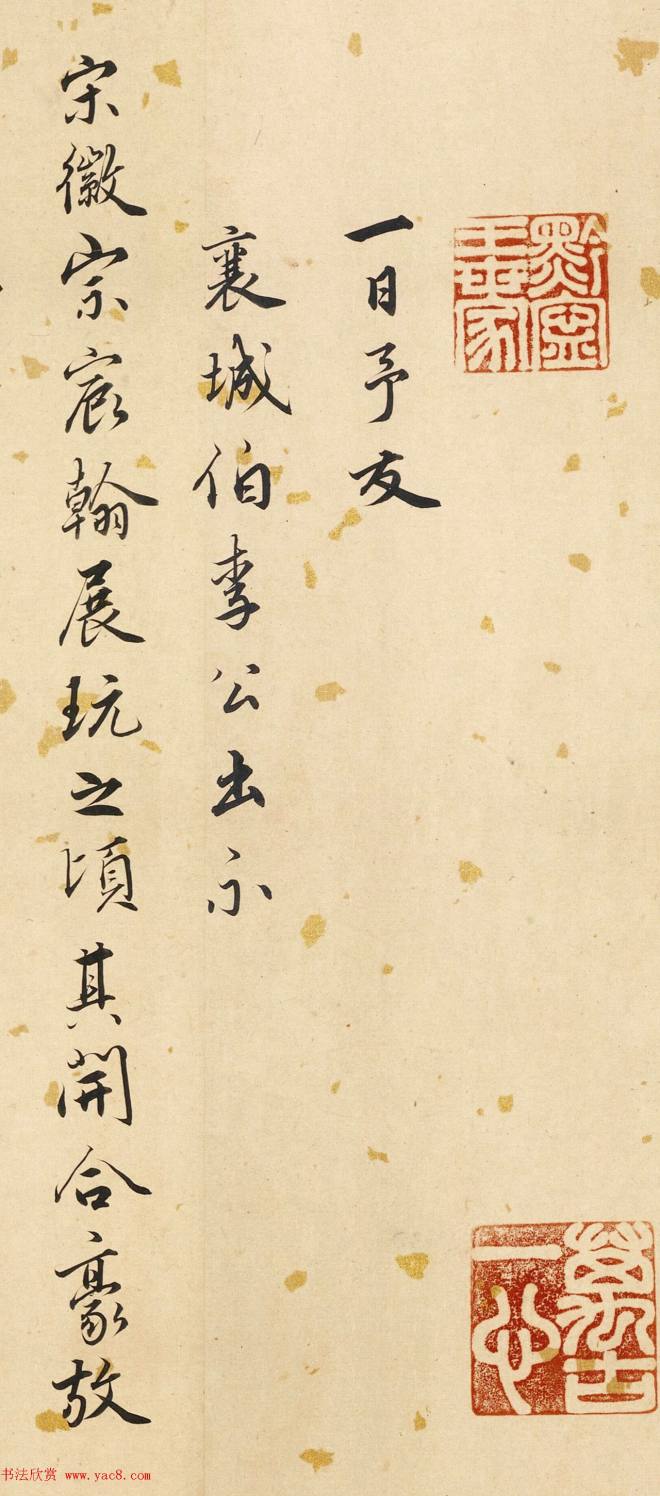 黔寧王世家
萬古一心
一日予友
襄城伯李公出示
宋徽宗宸翰展玩之頃其開合豪放
书法欣赏 www.yac8.com